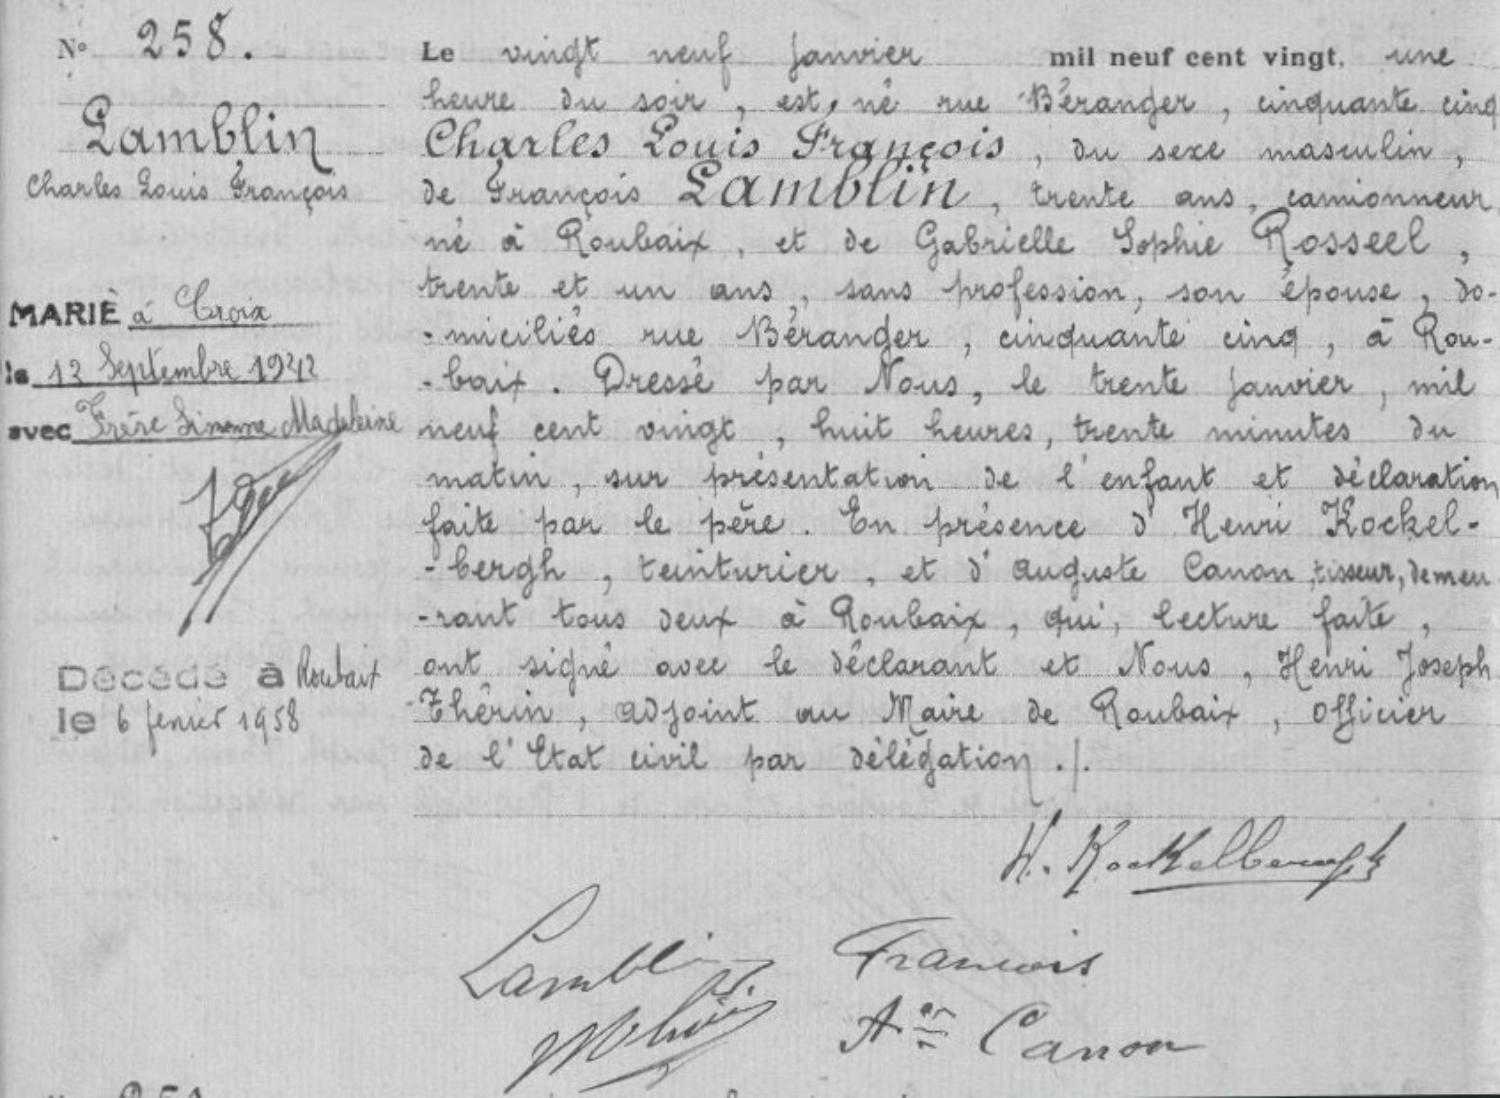 N° 258.
Lamblin
Charles Louis François
MARIÉ à Croix
le 12 Septembre 1942
avec Frère Simonne Madeleine
Décédé à Roubaix
le 6 février 1958
Le vingt neuf janvier mil neuf cent vingt, une
heure du soir, est, né rue Béranger, cinquante cinq
Charles Louis François, du sexe masculin,
de François Lamblin, trente ans, camionneur,
né à Roubaix, et de Gabrielle Sophie Rosseel,
trente et un ans, sans profession, son épouse, do-
-miciliés rue Béranger, cinquante cinq, à Rou-
-baix. Dressé par Nous, le trente janvier, mil
neuf cent vingt, huit heures, trente minutes du
matin, sur présentation de l'enfant et déclaration
faite par le père. En présence d'Henri Kockel-
-bergh, teinturier, et d'Auguste Canon, tisseur, demeu
-rant tous deux à Roubaix, qui, lecture faite,
ont signé avec le déclarant et Nous, Henri Joseph
Thérin, adjoint au Maire de Roubaix, officier
de l'Etat civil par délégation ./.
H. Kockelbergh
Lamblin François
Canon